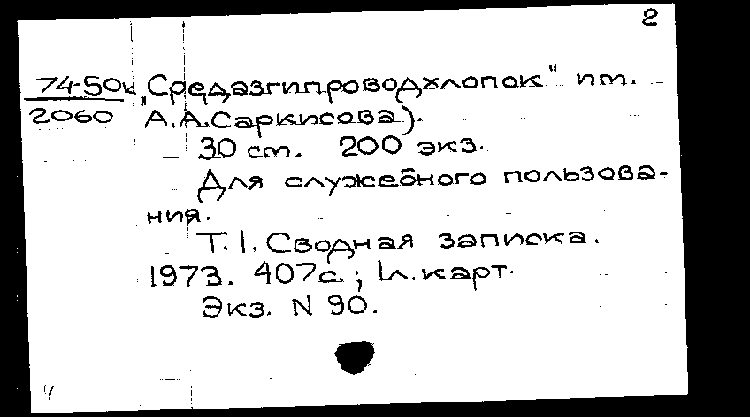 2
74-50к „Средазгипроводхлопок“ им.
2060 А.А.Саркисова).
30 см. 200 экз.
Для служебного пользова-
ния.
Т.1. Сводная записка.
1973. 407с.; 1л.карт.
Экз. N 90.